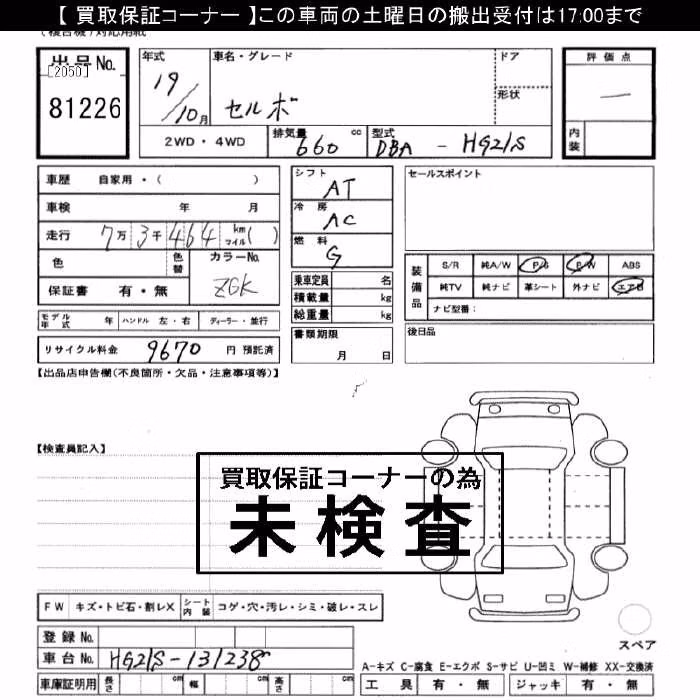 【 買取保証コーナー 】この車両の土曜日の搬出受付は17:00まで
出品No.
[2050]
81226
年式
19/10月
車名・グレード
セルボ
ドア
形状
評価点
—
内装
2WD・4WD
排気量 660 cc
型式 DBA - HG21S
車歴 自家用・( )
車検 年 月
走行 7万3千464 km マイル( )
色
色替
カラーNo.
ZGK
保証書 有・無
シフト
AT
冷房
AC
燃料
G
乗車定員 名
積載量 kg
総重量 kg
セールスポイント
装備品
S/R 純A/W P/S P/W ABS
純TV 純ナビ 革シート 外ナビ エアB
ナビ型番:
モデル年式 年 ハンドル 左・右 ディーラー・並行
リサイクル料金 9670 円 預託済
書類期限
月 日
後日品
【出品店申告欄(不良箇所・欠品・注意事項等)】
【検査員記入】
買取保証コーナーの為
未検査
FW キズ・トビ石・割レX シート内装 コゲ・穴・汚レ・シミ・破レ・スレ
登録No.
車台No. HG21S-131238
車庫証明用 長さ cm 幅 cm 高さ cm
スペア
A-キズ C-腐食 E-エクボ S-サビ U-凹ミ W-補修 XX-交換済
工具 有・無 ジャッキ 有・無